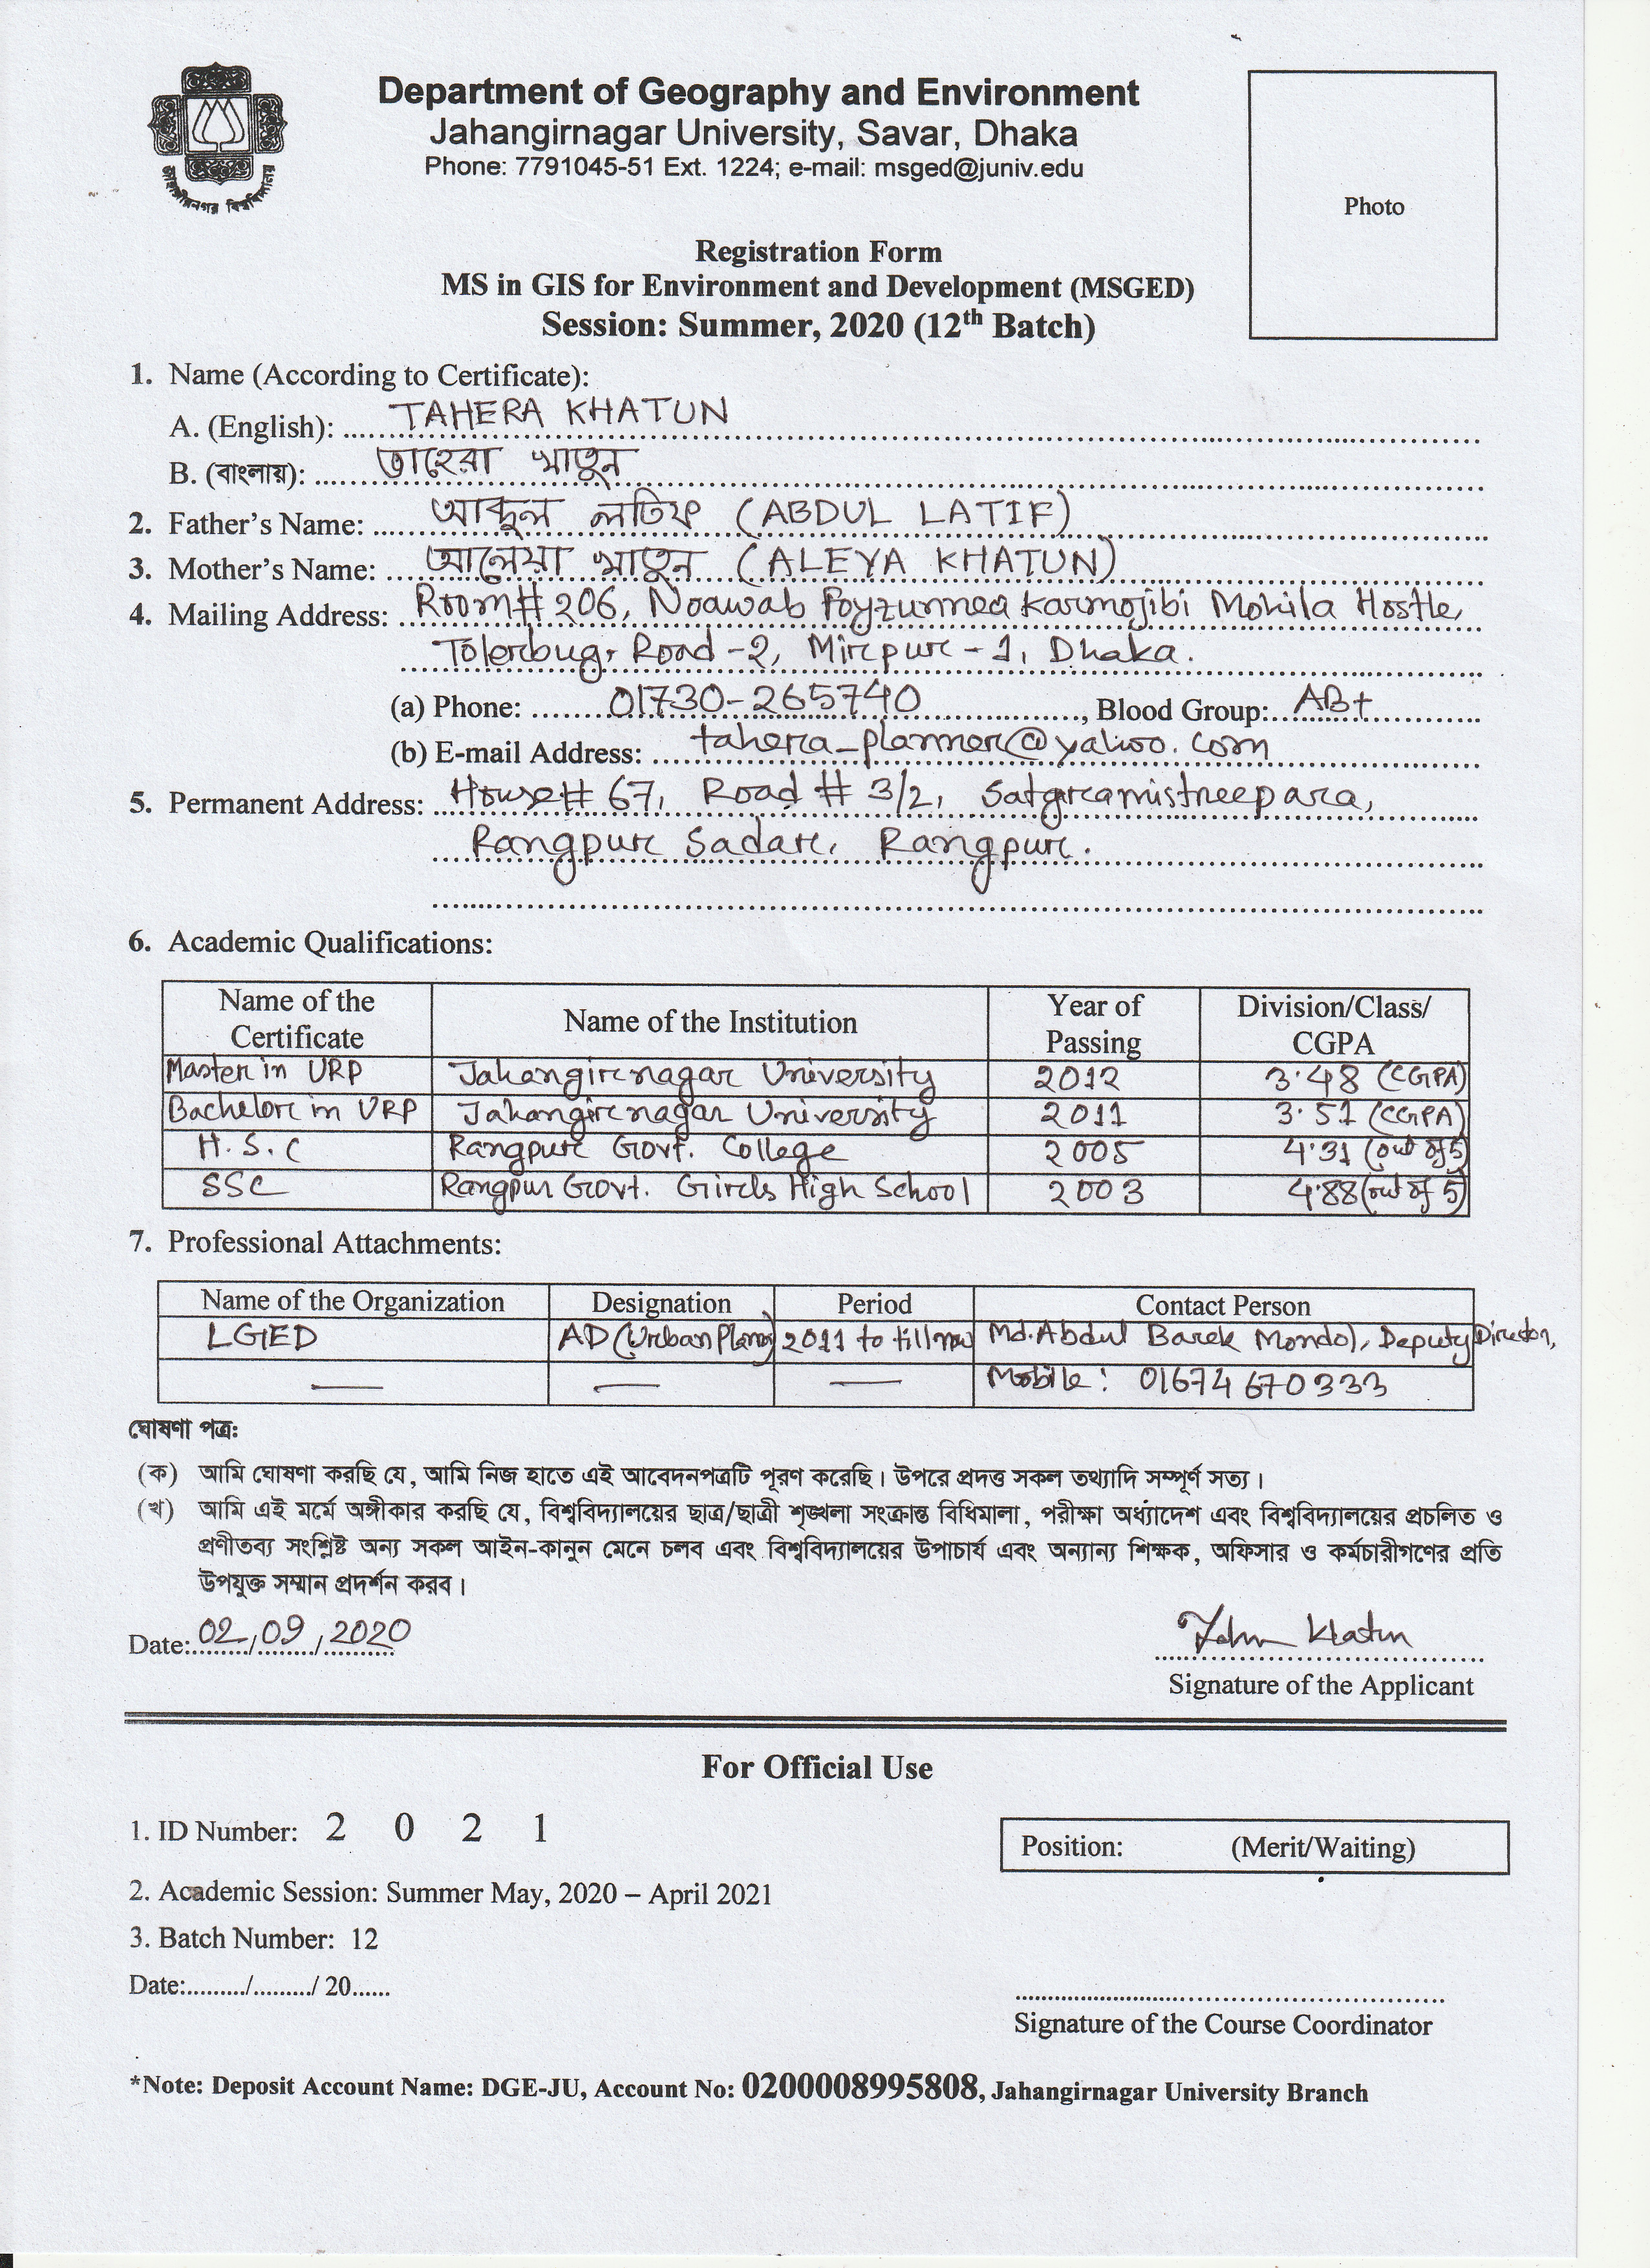 Department of Geography and Environment
Jahangirnagar University, Savar, Dhaka
Phone: 7791045-51 Ext. 1224; e-mail: msged@juniv.edu
জাহাঙ্গীরনগর বিশ্ববিদ্যালয়
Photo
Registration Form
MS in GIS for Environment and Development (MSGED)
Session: Summer, 2020 (12th Batch)
1. Name (According to Certificate):
A. (English): TAHERA KHATUN
B. (বাংলায়): তাহেরা খাতুন
2. Father's Name: আব্দুল লতিফ (ABDUL LATIF)
3. Mother's Name: আলেয়া খাতুন (ALEYA KHATUN)
4. Mailing Address: Room# 206, Noawab Foyzunnea Karmojibi Mohila Hostle,
Tolerbug, Road-2, Mirpur-1, Dhaka.
(a) Phone: 01730-265740, Blood Group: AB+
(b) E-mail Address: tahera_planner@yahoo.com
5. Permanent Address: House# 67, Road # 3/2, Satgramistreepara,
Rangpur Sadar, Rangpur.
6. Academic Qualifications:
Name of the Certificate Name of the Institution Year of Passing Division/Class/CGPA
Master in URP Jahangirnagar University 2012 3.48 (CGPA)
Bachelor in URP Jahangirnagar University 2011 3.51 (CGPA)
H.S.C Rangpur Govt. College 2005 4.31 (out of 5)
SSC Rangpur Govt. Girls High School 2003 4.88 (out of 5)
7. Professional Attachments:
Name of the Organization Designation Period Contact Person
LGED AD (Urban Plang) 2011 to till now Md. Abdul Barek Mondol, Deputy Director,
— — — Mobile: 01674670333
ঘোষণা পত্র:
(ক) আমি ঘোষণা করছি যে, আমি নিজ হাতে এই আবেদনপত্রটি পূরণ করেছি। উপরে প্রদত্ত সকল তথ্যাদি সম্পূর্ণ সত্য।
(খ) আমি এই মর্মে অঙ্গীকার করছি যে, বিশ্ববিদ্যালয়ের ছাত্র/ছাত্রী শৃঙ্খলা সংক্রান্ত বিধিমালা, পরীক্ষা অধ্যাদেশ এবং বিশ্ববিদ্যালয়ের প্রচলিত ও
প্রণীতব্য সংশ্লিষ্ট অন্য সকল আইন-কানুন মেনে চলব এবং বিশ্ববিদ্যালয়ের উপাচার্য এবং অন্যান্য শিক্ষক, অফিসার ও কর্মচারীগণের প্রতি
উপযুক্ত সম্মান প্রদর্শন করব।
Date: 02/09/2020 Khatun
Signature of the Applicant
For Official Use
1. ID Number: 2 0 2 1
Position: (Merit/Waiting)
2. Academic Session: Summer May, 2020 – April 2021
3. Batch Number: 12
Date:........./........./ 20......
Signature of the Course Coordinator
*Note: Deposit Account Name: DGE-JU, Account No: 0200008995808, Jahangirnagar University Branch